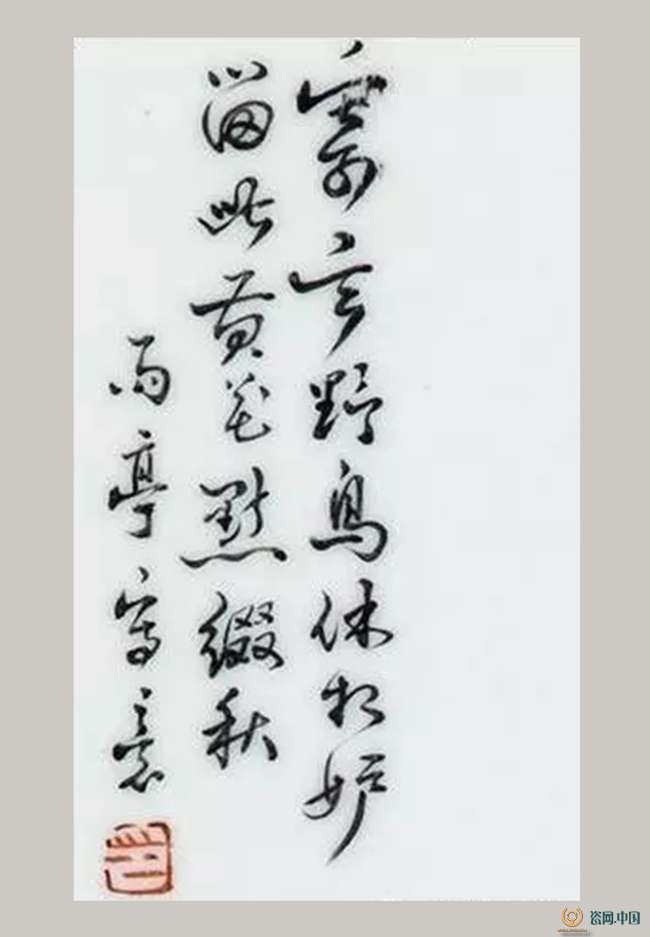 寄言野鳥休相妒
留此黄花點綴秋
雨亭寫意
瓷网.中国